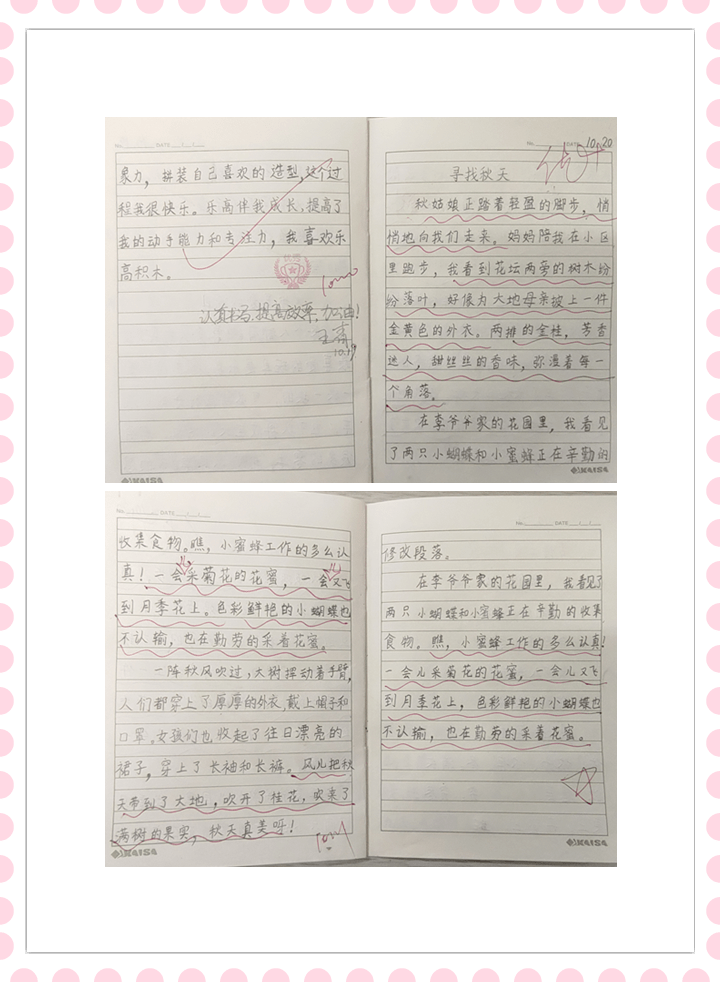 No. DATE
象力，拼装自己喜欢的造型，这个过
程我很快乐。乐高伴我成长，提高了
我的动手能力和专注力，我喜欢乐
高积木。
认真书写，提高效率，加油！
10.19
KAISA
No. DATE 10.20
优+
寻找秋天
秋姑娘正踏着轻盈的脚步，悄
悄地向我们走来。妈妈陪我在小区
里跑步，我看到花坛两旁的树木纷
纷落叶，好像为大地母亲披上一件
金黄色的外衣。两排的金桂，芳香
迷人，甜丝丝的香味，弥漫着每一
个角落。
在李爷爷家的花园里，我看见
了两只小蝴蝶和小蜜蜂正在辛勤的
KAISA
No. DATE
收集食物。瞧，小蜜蜂工作的多么认
真！一会采菊花的花蜜，一会又飞
到月季花上。色彩鲜艳的小蝴蝶也
不认输，也在勤劳的采着花蜜。
一阵秋风吹过，大树挥动着手臂，
人们都穿上了厚厚的外衣，戴上帽子和
口罩。女孩们也收起了往日漂亮的
裙子，穿上了长袖和长裤。风儿把秋
天带到了大地，吹开了桂花，吹来了
满树的果实，秋天真美呀！
KAISA
No. DATE
修改段落。
在李爷爷家的花园里，我看见了
两只小蝴蝶和小蜜蜂正在辛勤的收集
食物。瞧，小蜜蜂工作的多么认真！
一会儿采菊花的花蜜，一会儿又飞
到月季花上，色彩鲜艳的小蝴蝶也
不认输，也在勤劳的采着花蜜。
KAISA